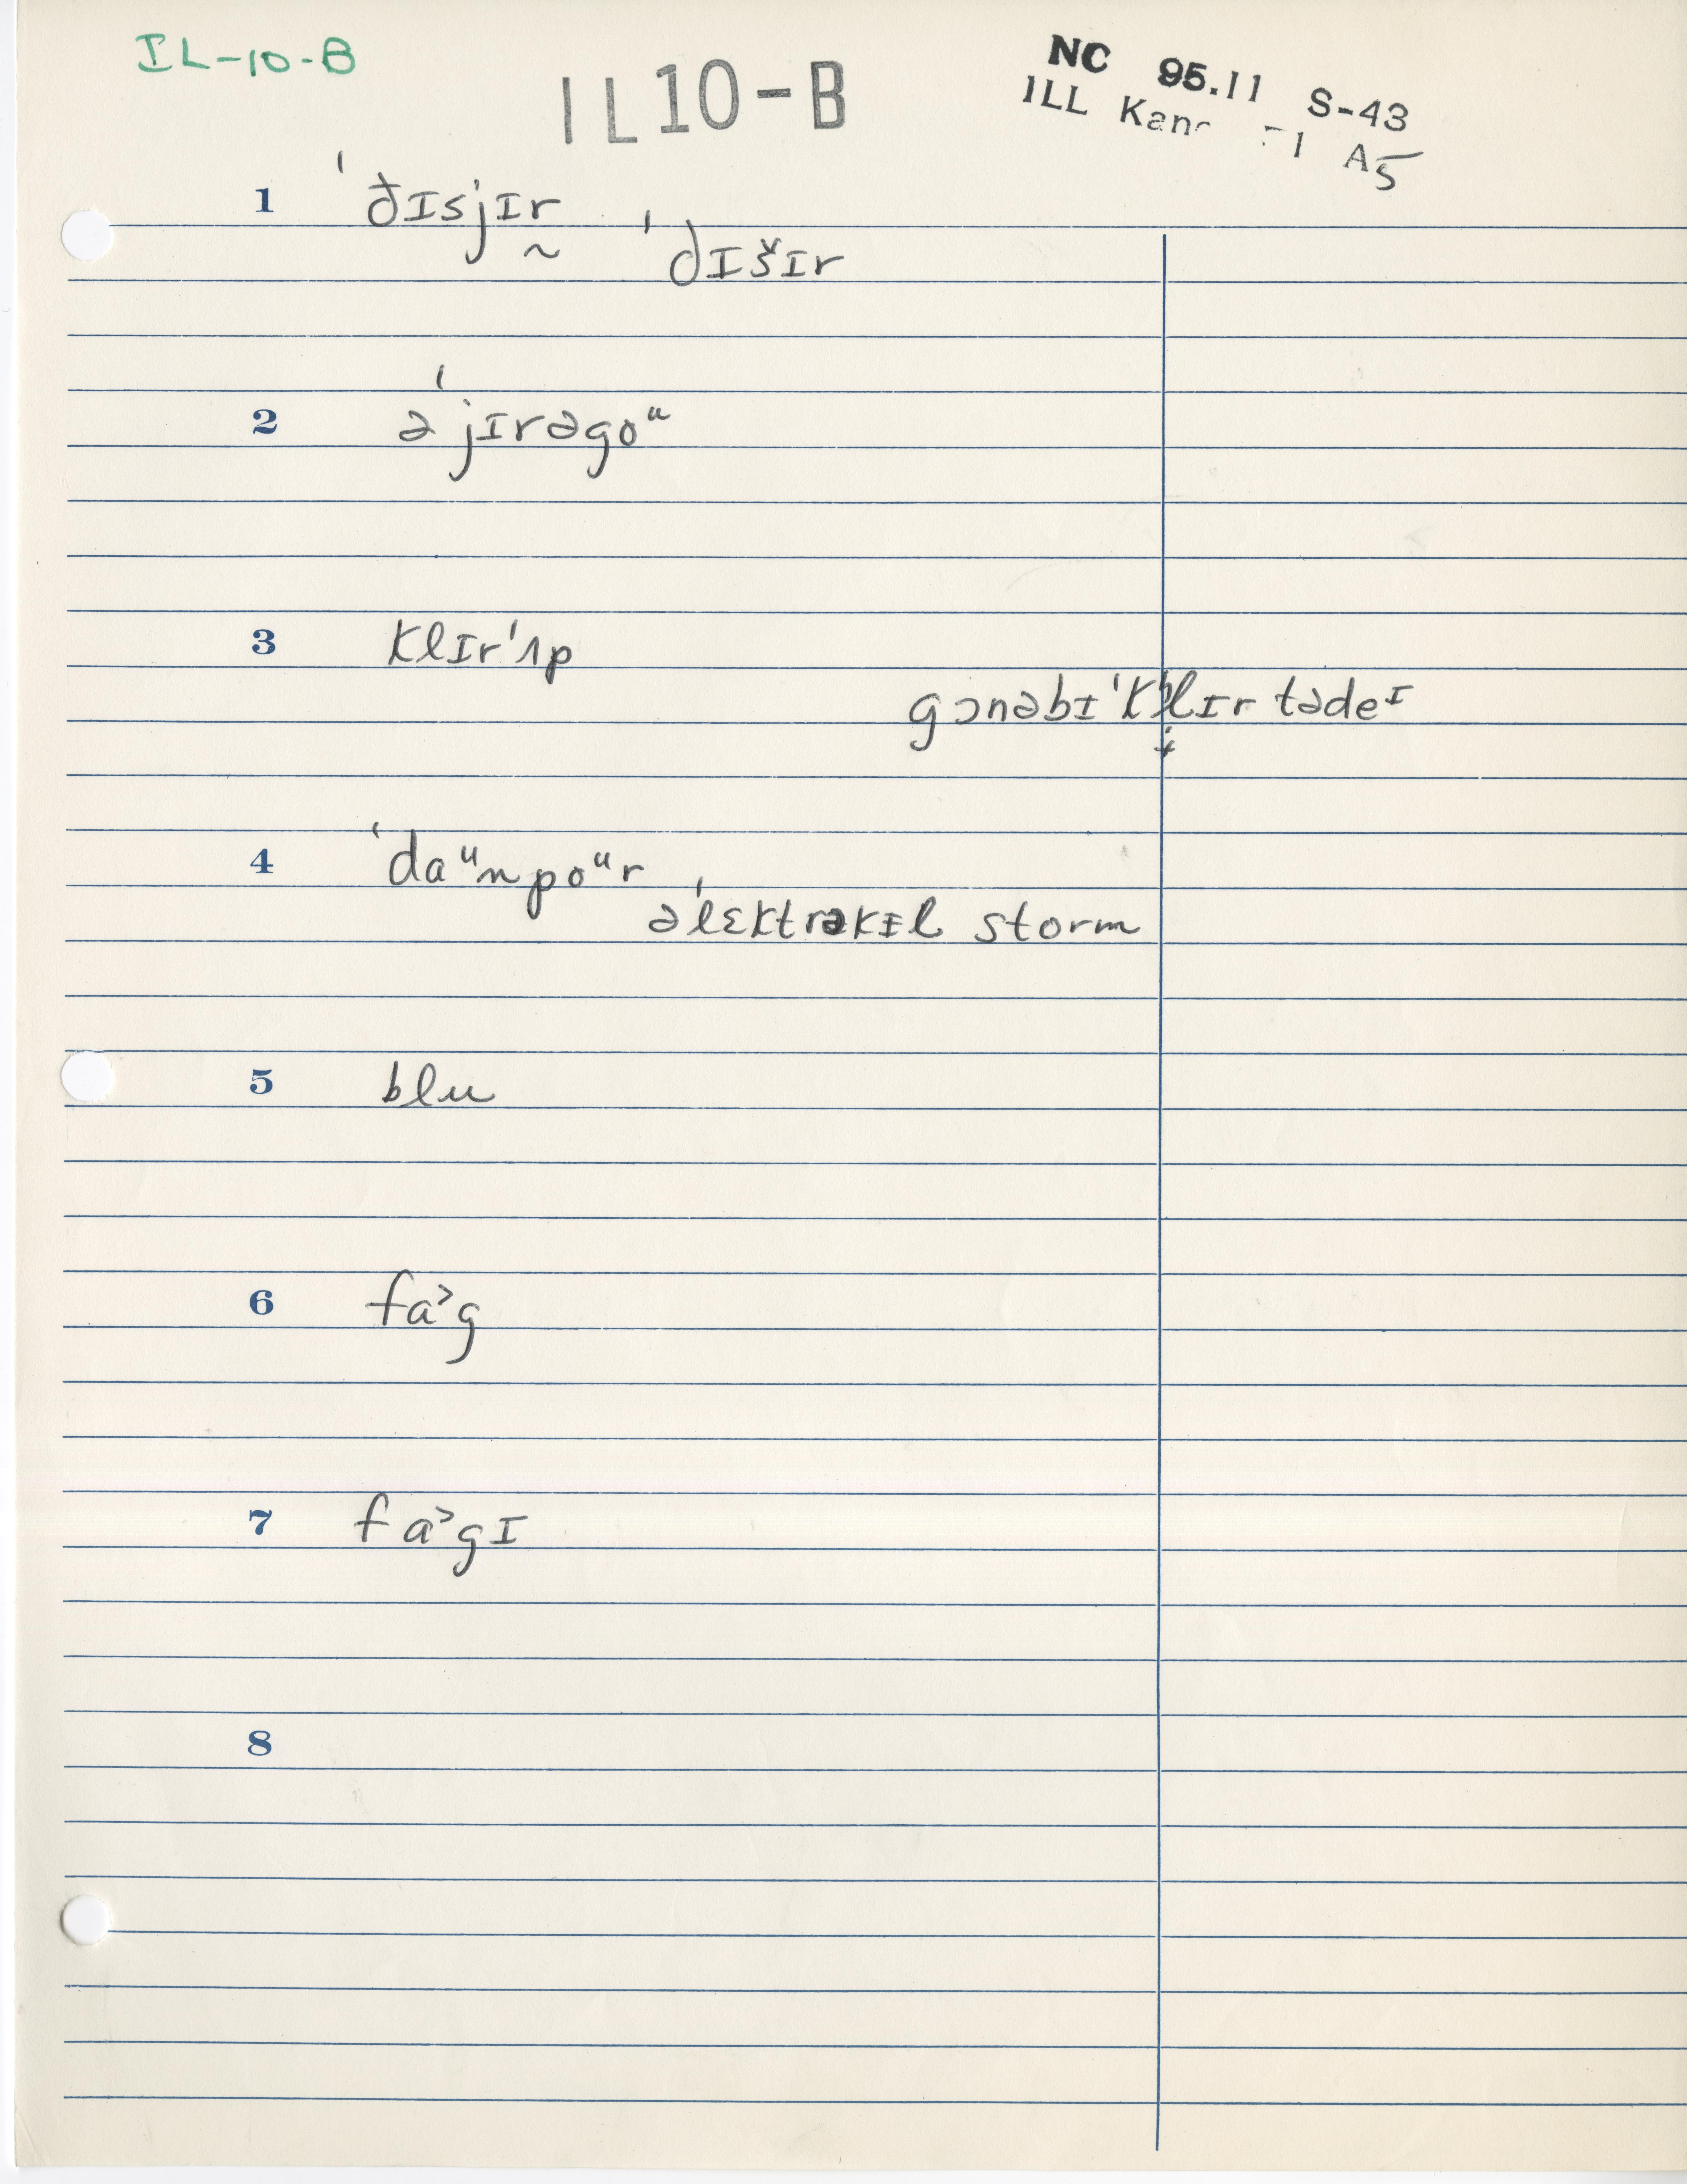 IL-10-B
IL10-B
NC 95.11 S-43
ILL A5
1 ˈðɪsjɪr
~ ˈðɪšɪr
2 əˈjɪrəgoᵘ
3 klɪrˈʌp
gɔnəbɪˈkl̥ɪr tədeᶦ
4 ˈdaᵘnpoᵘr
əˈlɛktrəkɪ̵l storm
5 blu
6 fa˃g
7 fa˃gɪ
8